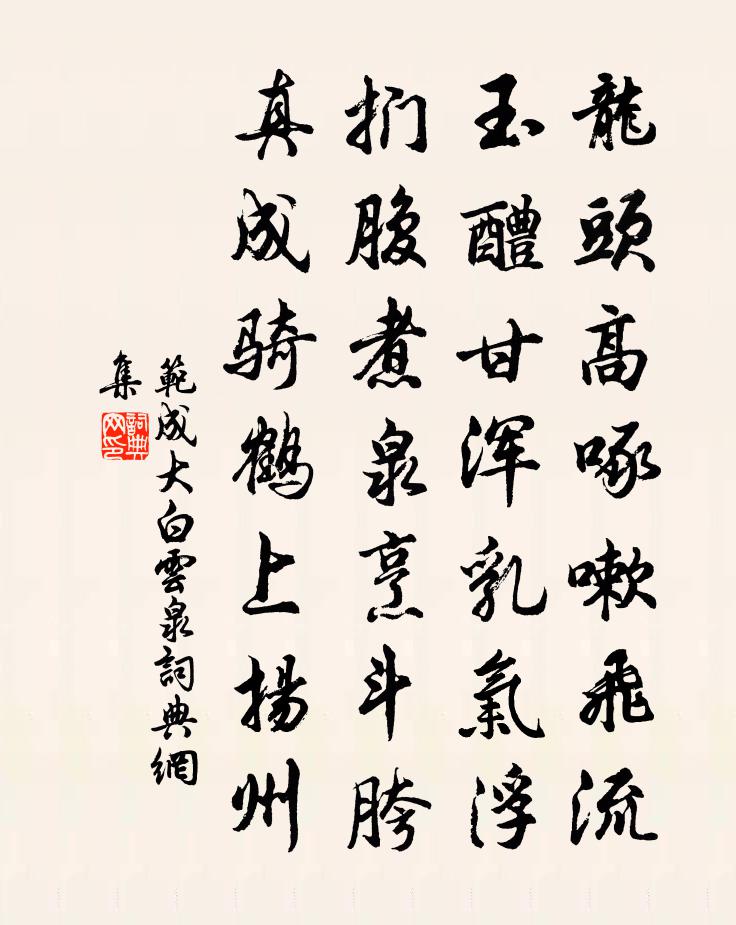 龍頭高啄嗽飛流
玉醴甘浑乳氣浮
捫腹煮泉烹斗胯
真成骑鹤上揚州
範成大白雲泉詞典網
集
詞典
网印